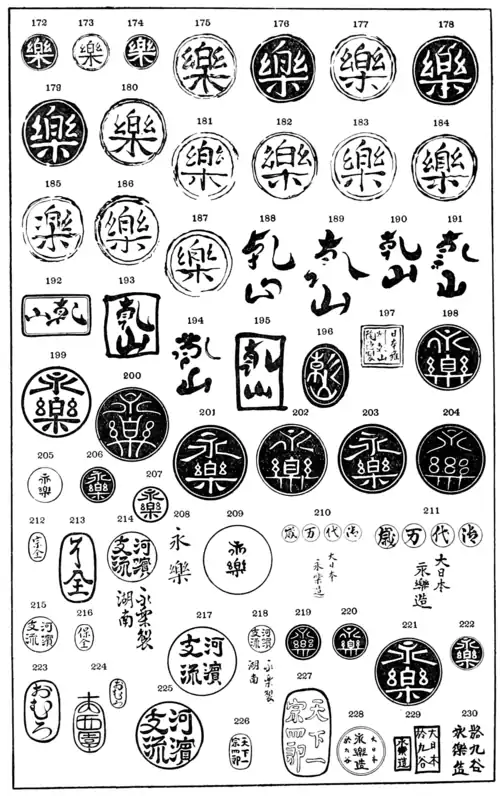 172 173 174 175 176 177 178
樂 樂 樂 樂 樂 樂 樂
179 180 181 182 183 184
樂 樂 樂 樂 樂 樂
185 186 187 188 189 190 191
樂 樂 樂 乾山 乾山 乾山 乾山
192 193 194 195 196 197 198
乾山 乾山 乾山 乾山 乾山 日本産 永樂
199 200 201 202 203 204
永樂 永樂 永樂 永樂 永樂 永樂
205 206 207 208 209 210 211
永樂 永樂 永樂 永樂 永樂
歳万代
大日本
永樂造
歳万代
大日本
永樂造
212 213 214
了全
河濱
支流
永楽製
湖南
215 216 217 218 219 220 221 222
河濱
支流
保全
河濱
支流
河濱
支流
永楽製
湖南
永樂 永樂 永樂 永樂
223 224 225 226 227 228 229 230
おむろ
おむろ
河濱
支流
天下一
宗四郎
天下一
宗四郎
大日本
永楽造
於九谷
永樂造
大日本
於九谷
於九谷
永樂造